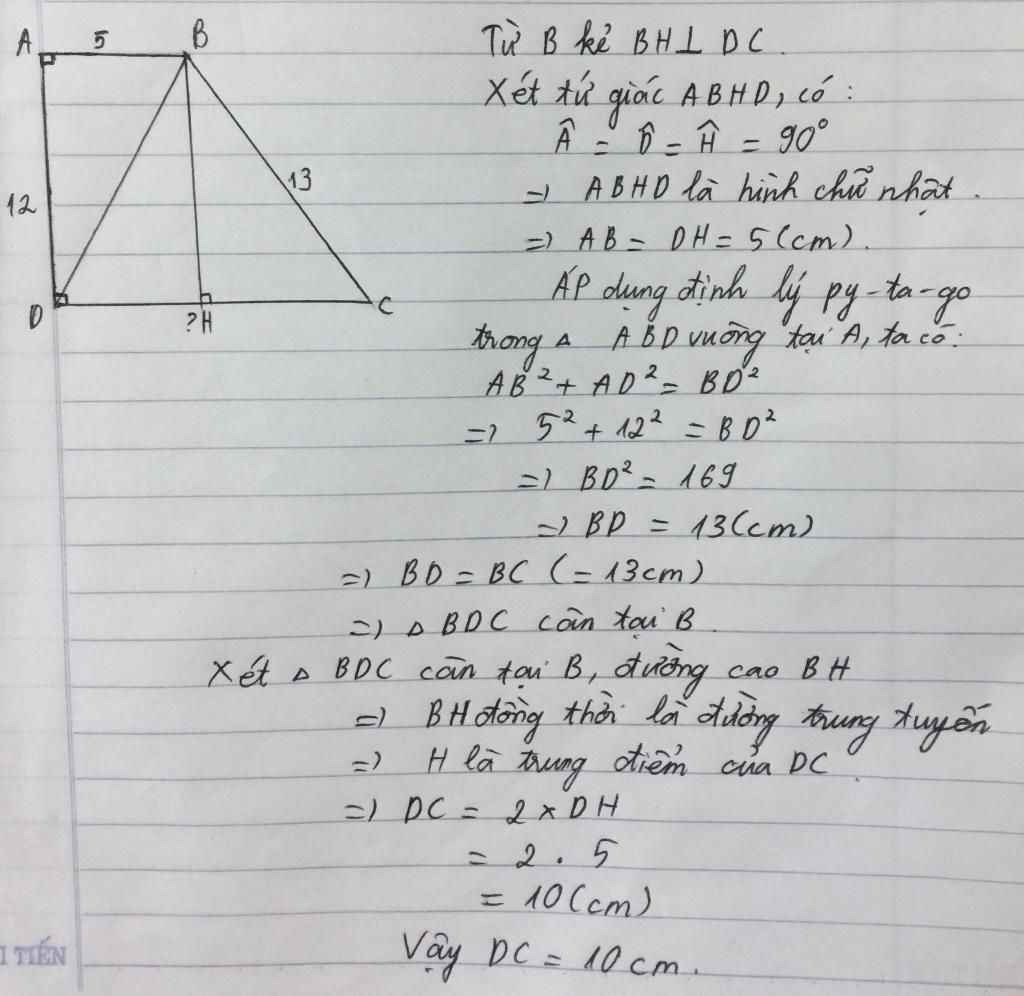 A 5 B
12
13
D ?H C
Từ B kẻ BH ⊥ DC.
Xét tứ giác ABHD, có:
Â = D̂ = Ĥ = 90°
=> ABHD là hình chữ nhật.
=> AB = DH = 5 (cm).
ÁP dụng định lý py-ta-go
trong △ ABD vuông tại A, ta có:
AB² + AD² = BD²
=> 5² + 12² = BD²
=> BD² = 169
=> BD = 13 (cm)
=> BD = BC (= 13cm)
=> △ BDC cân tại B.
Xét △ BDC cân tại B, đường cao BH
=> BH đồng thời là đường trung tuyến
=> H là trung điểm của DC.
=> DC = 2 x DH
= 2 . 5
= 10 (cm)
Vậy DC = 10 cm.
I TIẾN